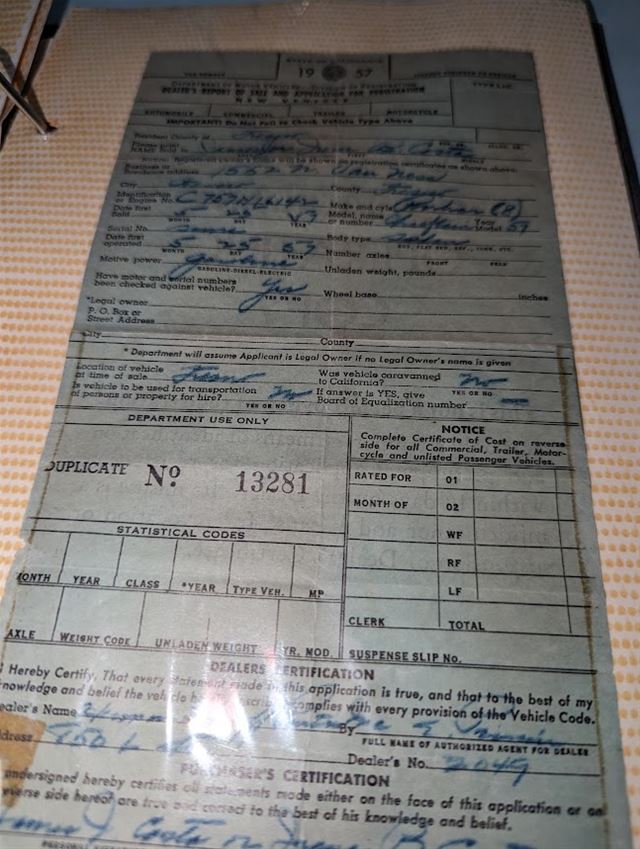 STATE OF CALIFORNIA
1957
DEPARTMENT OF MOTOR VEHICLES—DIVISION OF REGISTRATION
DEALER'S REPORT OF SALE AND APPLICATION FOR REGISTRATION
NEW VEHICLE
AUTOMOBILE COMMERCIAL TRAILER MOTORCYCLE
IMPORTANT! Do Not Fail to Check Vehicle Type Above
Resident County of Fresno
Please print
NAME Sold to
NOTE: Registered owner's name will be shown on registration certificates as shown above.
Business or
Residence address 1552 N. Van Ness
City Fresno County Fresno
Identification
or Engine No. C757H16142 Make and cyl. Pontiac (8)
Date first
Sold 5 25 57 Model, name
or number Year
Model 57
MONTH DAY YEAR
Serial No. same Body type
Date first
operated 5 25 57 Number axles
MONTH DAY YEAR FRONT REAR
Motive power gasoline Unladen weight, pounds
GASOLINE-DIESEL-ELECTRIC
Have motor and serial numbers
been checked against vehicle? Yes Wheel base inches
YES OR NO
*Legal owner
P. O. Box or
Street Address
City County
* Department will assume Applicant is Legal Owner if no Legal Owner's name is given
Location of vehicle
at time of sale Fresno Was vehicle caravanned
to California? no
YES OR NO
Is vehicle to be used for transportation
of persons or property for hire? no If answer is YES, give
Board of Equalization number —
YES OR NO
DEPARTMENT USE ONLY
NOTICE
Complete Certificate of Cost on reverse
side for all Commercial, Trailer, Motor-
cycle and unlisted Passenger Vehicles.
DUPLICATE No 13281
RATED FOR 01
MONTH OF 02
WF
RF
LF
CLERK TOTAL
SUSPENSE SLIP No.
STATISTICAL CODES
MONTH YEAR CLASS *YEAR TYPE VEH. MP
AXLE WEIGHT CODE UNLADEN WEIGHT YR. MOD.
DEALERS CERTIFICATION
I Hereby Certify, That every statement made in this application is true, and that to the best of my
knowledge and belief the vehicle herein described complies with every provision of the Vehicle Code.
Dealer's Name By
FULL NAME OF AUTHORIZED AGENT FOR DEALER
Address 950 L Dealer's No. 2049
PURCHASER'S CERTIFICATION
undersigned hereby certifies all statements made either on the face of this application or on
reverse side hereof are true and correct to the best of his knowledge and belief.
James J. Costa or Irene B. C